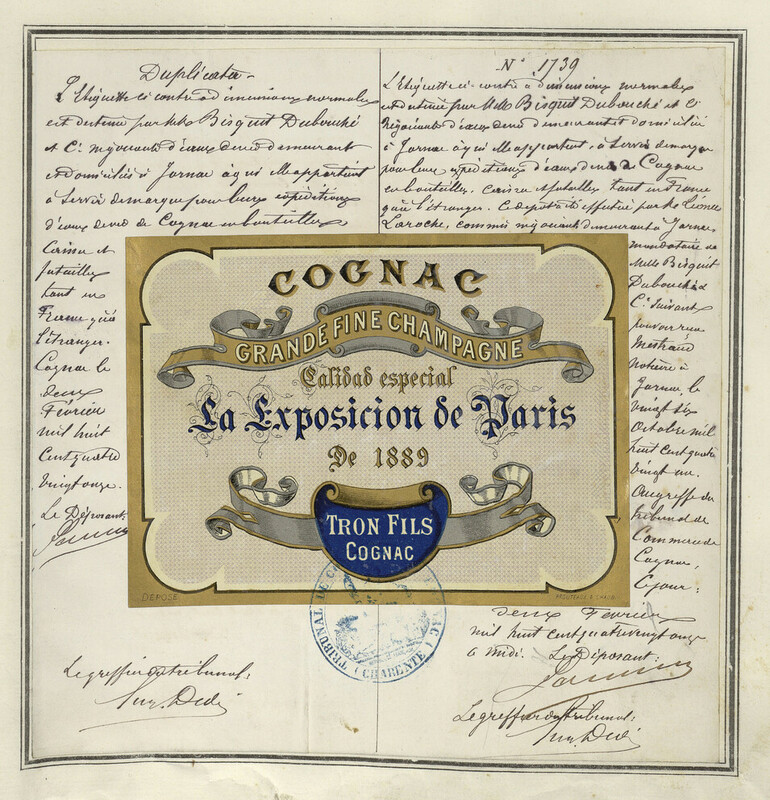 Duplicata
L'Etiquette ci contre à dimensions normales
est destinée par MM Bisquit Dubouché
et Cie négociants d'eaux de vie demeurant
et domiciliés à Jarnac à qui elle appartient
à servir de marque pour leurs expéditions
d'eaux de vie de Cognac en bouteilles
Caisses et
futailles
tant en
France qu'à
l'étranger.
Cognac le
deux
Février
mil huit
cent quatre
vingt onze.
Le Déposant.
Le greffier du tribunal:
N° 1739
L'Etiquette ci-contre à dimensions normales
est destinée par MM Bisquit Dubouché et Cie
Négociants d'eaux de vie demeurant et domiciliés
à Jarnac à qui elle appartient, à servir de marque
pour leurs expéditions d'eaux de vie de Cognac
en bouteilles, caisses et futailles tant en France
qu'à l'étranger. Ce dépôt est effectué par Mr Léonce
Laroche, commis négociant demeurant à Jarnac
mandataire de
MM Bisquit
Dubouché &
Cie suivant
pouvoir reçu
notaire à
Jarnac, le
vingt six
Octobre mil
huit cent quatre
vingt un.
Au greffe du
tribunal de
Commerce de
Cognac,
Ce jour:
deux Février
mil huit cent quatre vingt onze
à midi. Le Déposant:
Le greffier du tribunal:
COGNAC
GRANDE FINE CHAMPAGNE
Calidad especial
La Exposicion de Paris
De 1889
TRON FILS
COGNAC
DÉPOSÉ
TRIBUNAL DE
(CHARENTE)